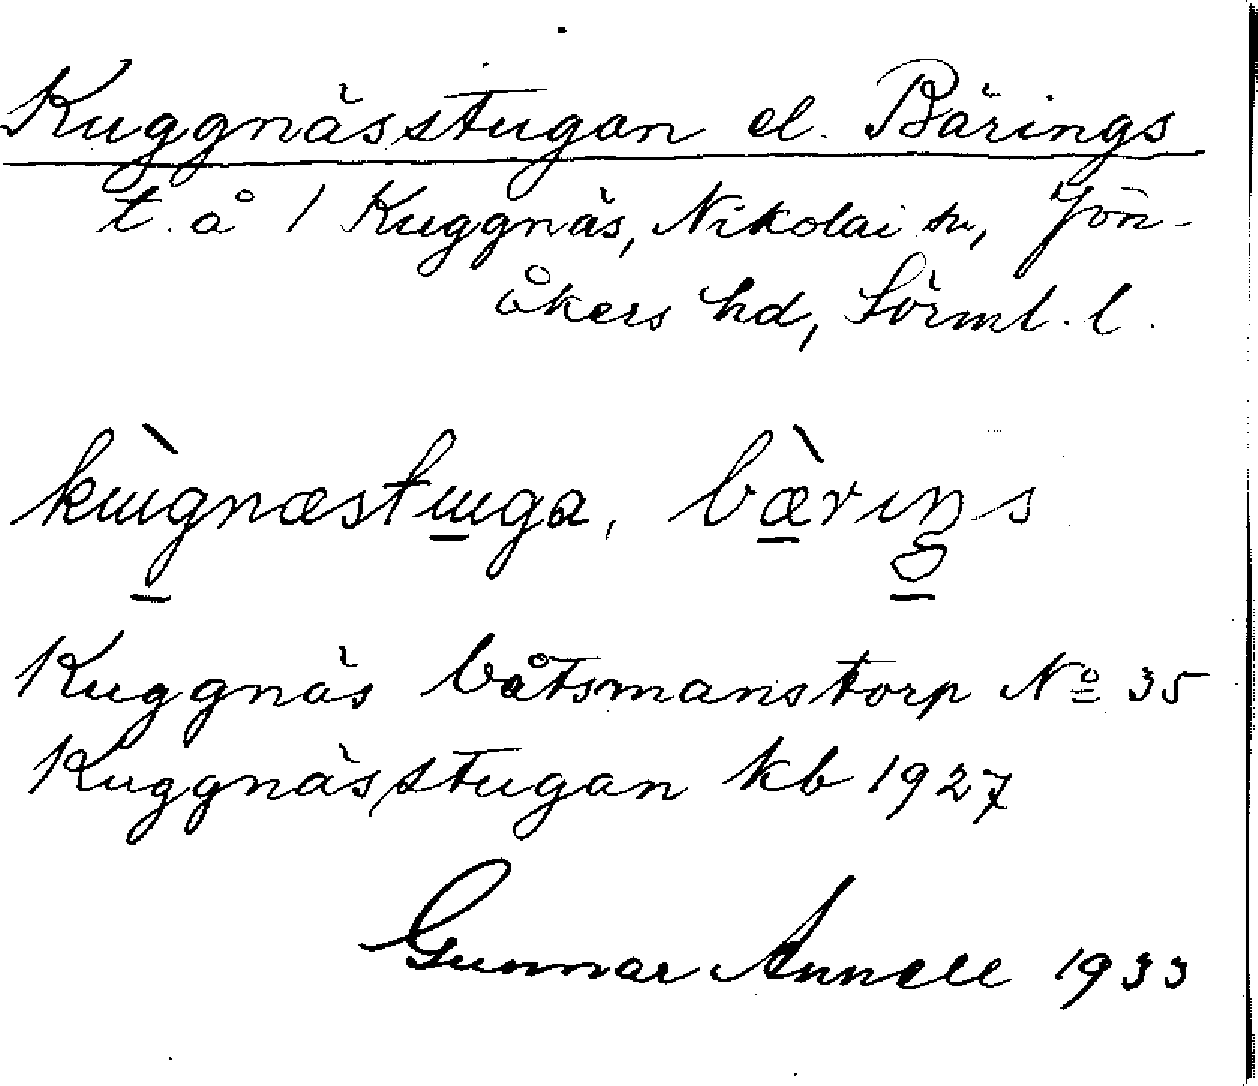 Kuggnässtugan el. Bärings
t. å 1 Kuggnäs, Nikolai sn, Jön-
åkers hd, Sörml. l.
bæ̀rıŋs
Kuggnäs båtsmanstorp No 35
Kuggnässtugan kb 1927
Gunnar Annell 1933